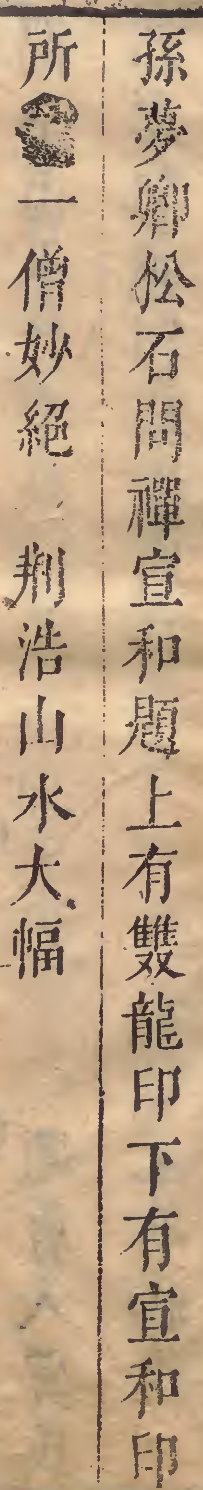 孫夢卿松石問禪宣和題上有雙龍印下有宣和印
所一僧妙絕　荆浩山水大幅